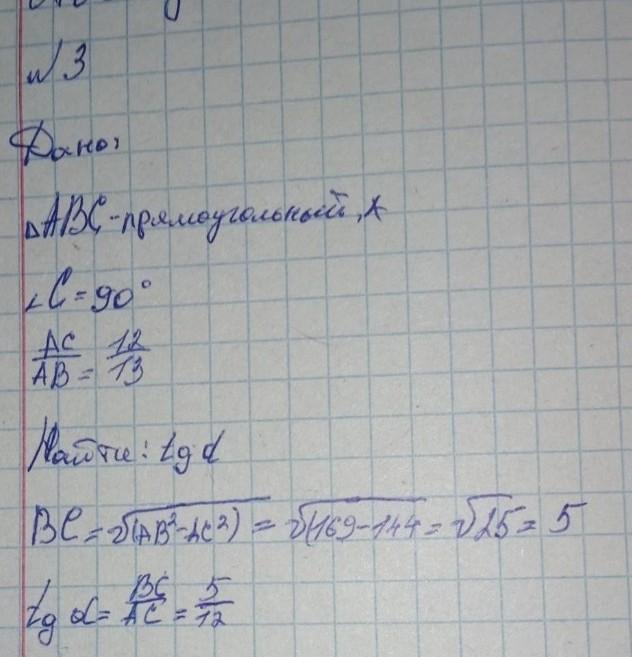 №3
Дано:
△ABC-прямоугольный,
∠C=90°
AC/AB = 12/13
Найти: tg α
BC=√(AB²-AC²) = √(169-144 = √25 = 5
tg α = BC/AC = 5/12